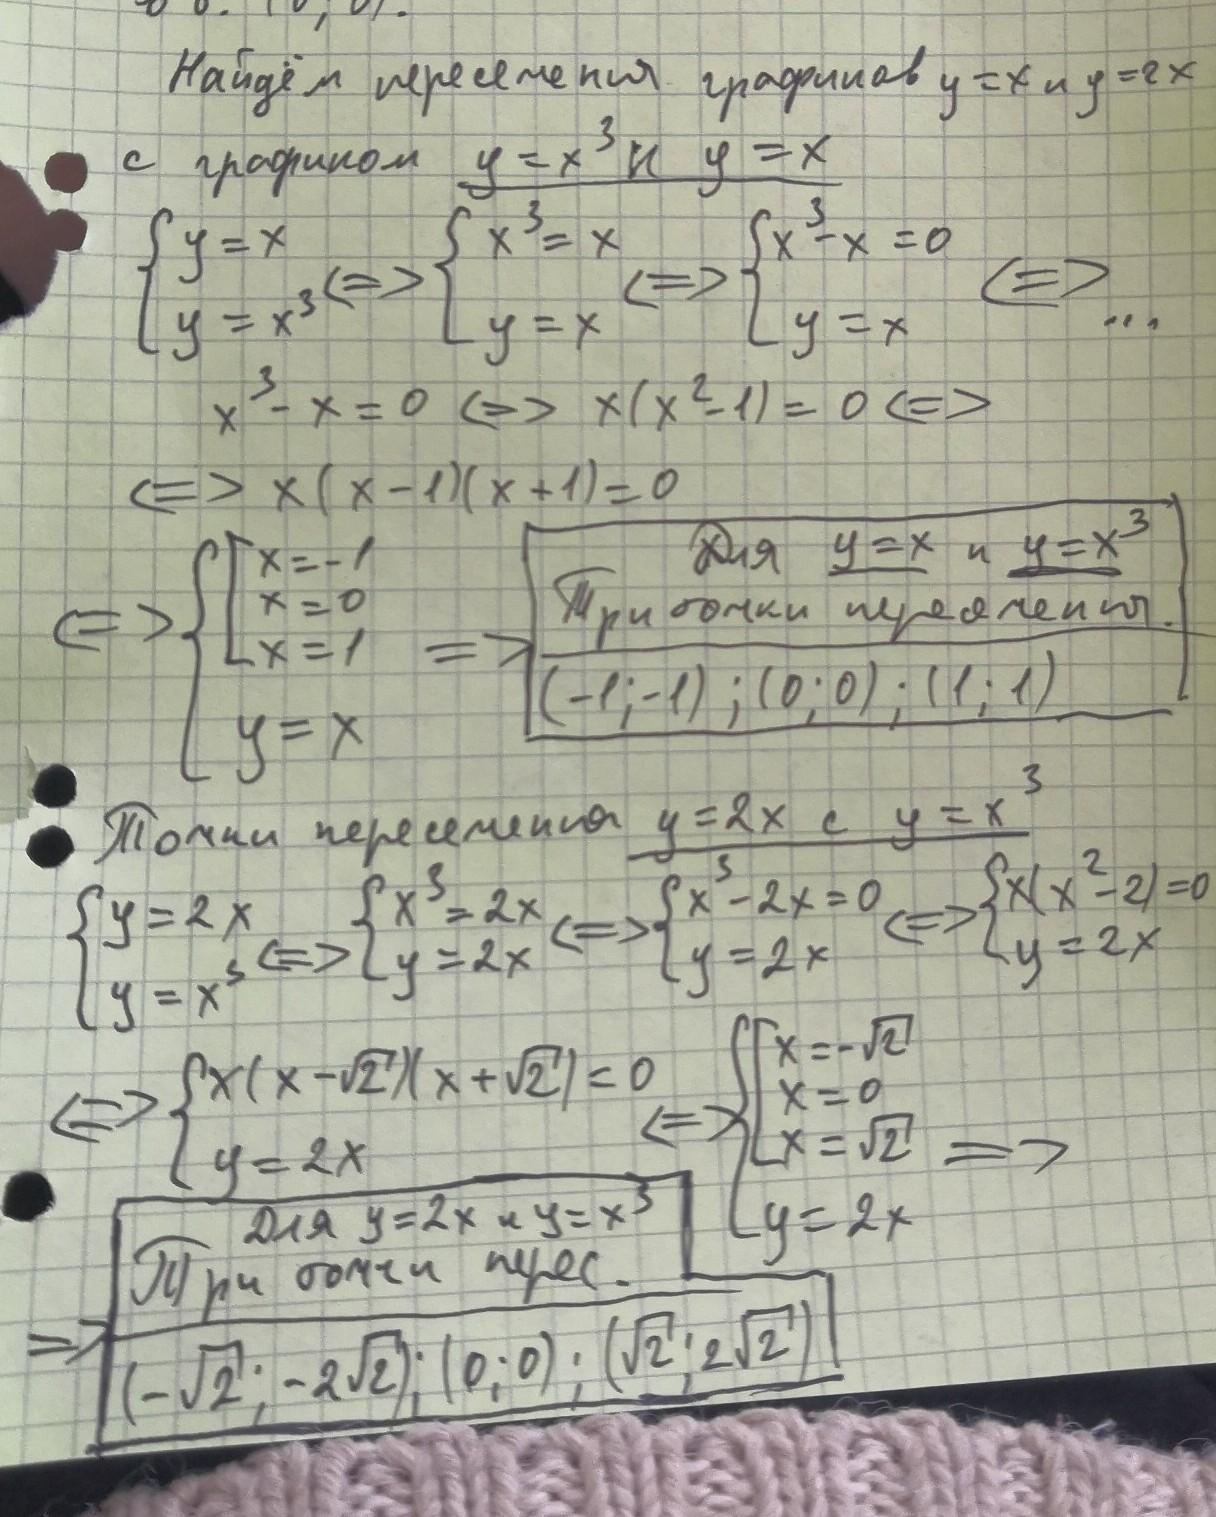 Найдём пересечения графиков y = x и y = 2x
с графиком y = x³ и y = x
{ y = x ; y = x³ <=> { x³ = x ; y = x <=> { x³ - x = 0 ; y = x <=> ...
x³ - x = 0 <=> x(x² - 1) = 0 <=>
<=> x(x - 1)(x + 1) = 0
<=> { [ x = -1 ; x = 0 ; x = 1 ; y = x =>
Для y = x и y = x³
Три точки пересечения.
(-1; -1) ; (0; 0) ; (1; 1)
Точки пересечения y = 2x с y = x³
{ y = 2x ; y = x³ <=> { x³ = 2x ; y = 2x <=> { x³ - 2x = 0 ; y = 2x <=> { x(x² - 2) = 0 ; y = 2x
<=> { x(x - √2)(x + √2) = 0 ; y = 2x <=> { [ x = -√2 ; x = 0 ; x = √2 ; y = 2x =>
Для y = 2x и y = x³
Три точки перес.
=> (-√2; -2√2); (0; 0) ; (√2; 2√2)